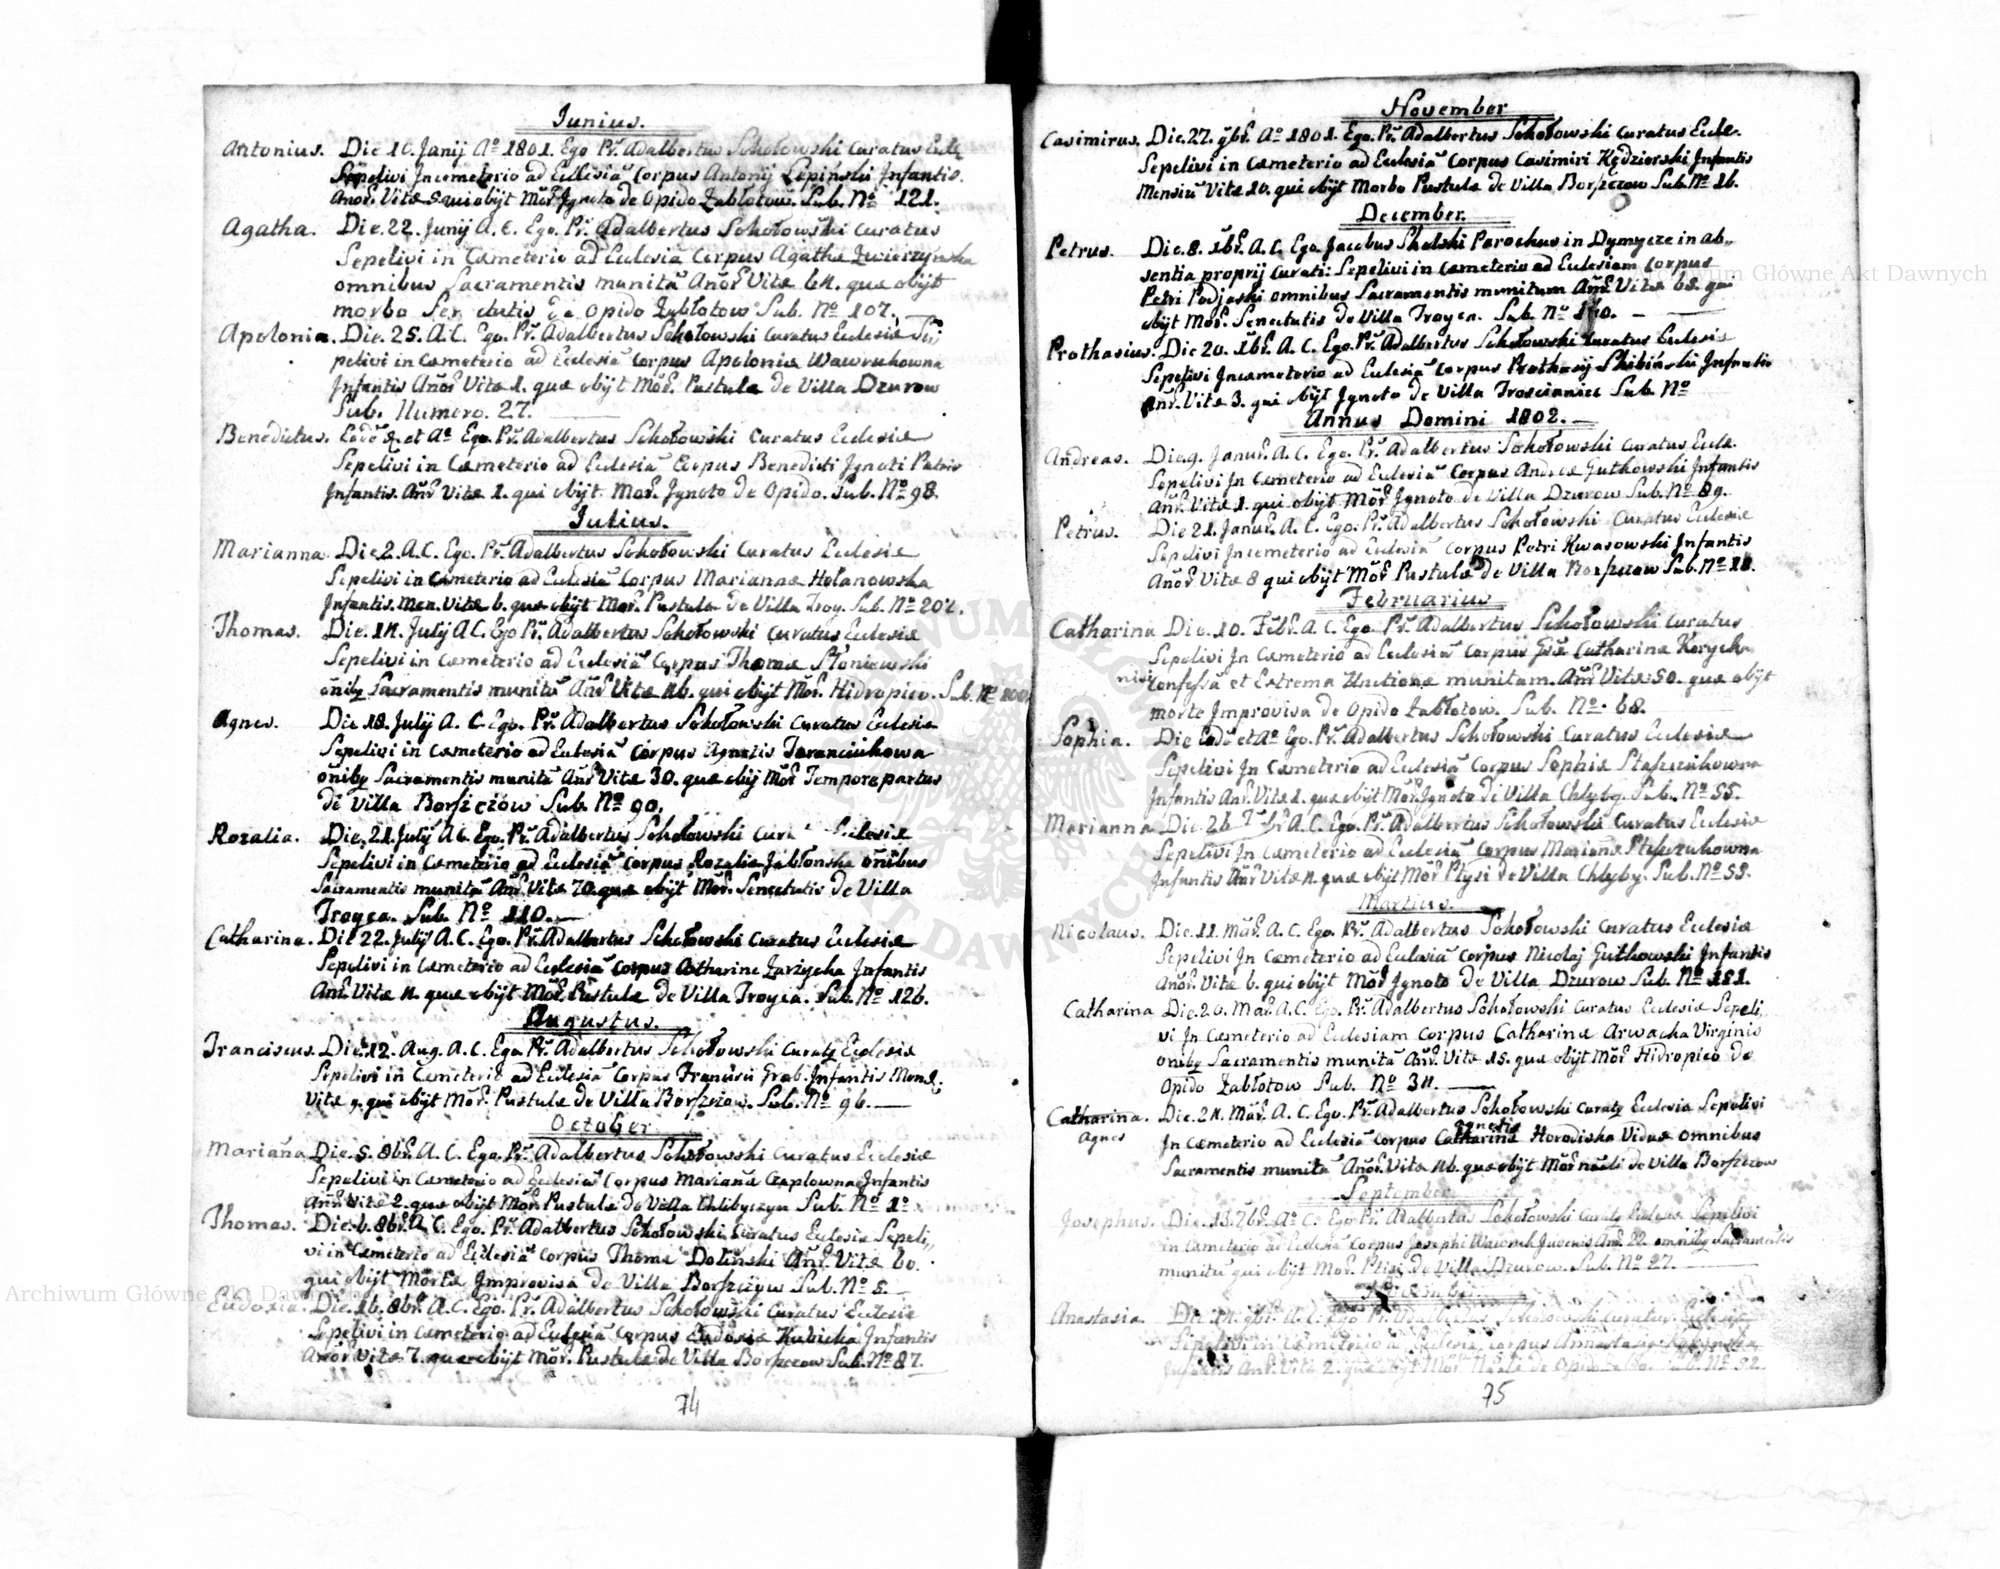 Junius.
Antonius. Die 10. Junij Aº 1801. Ego Pr. Adalbertus Sokołowski Curatus Eccle
Sepelivi Incemeterio ad Ecclesiã Corpus Antonij Lepiński Infantis.
Anor. Vitæ 9 qui obijt Mor. Ignoto de Opido Zabłotow. Sub. Nº 121.
Agatha. Die. 22. Junij A. C. Ego. Pr. Adalbertus Sokołowski Curatus
Sepelivi in Cæmeterio ad Ecclesiã Corpus Agathæ Zwierzyńska
omnibus Sacramentis munitã Anor Vitæ 64. quæ obijt
morbo Senectutis de Opido Zabłotow Sub. Nº 107.
Apolonia. Die. 25. A.C. Ego. Pr. Adalbertus Sokołowski Curatus Ecclesiæ Se
pelivi in Cæmeterio ad Ecclesiã Corpus Apoloniæ Wawrukowna
Infantis Anor Vitæ 1. quæ obijt Mor. Pustulæ de Villa Dzurow
Sub. Numero. 27.
Benedictus. Eodē et Aº Ego. Pr. Adalbertus Sokołowski Curatus Ecclesiæ
Sepelivi in Cæmeterio ad Ecclesiã Corpus Benedicti Ignoti Patris
Infantis. Anr Vitæ 1. qui obijt. Mor. Ignoto de Opido. Sub. Nº 98.
Julius.
Marianna. Die 2. A.C. Ego. Pr. Adalbertus Sokołowski Curatus Ecclesiæ
Sepelivi in Cæmeterio ad Ecclesiã Corpus Mariannæ Holanowska
Infantis. Men. Vitæ 6. quæ obijt Mor. Pustulæ de Villa Troy. Sub. Nº 202.
Thomas. Die. 14. Julij A C. Ego Pr. Adalbertus Sokołowski Curatus Ecclesiæ
Sepelivi in Cæmeterio ad Ecclesiã Corpus Thomæ Słoniewski
ōnibȝ Sacramentis munitũ Anr. Vitæ 46. qui obijt Mor. Hidropico. Sub. Nº 100.
Agnes. Die 18. Julij A. C. Ego. Pr. Adalbertus Sokołowski Curatus Ecclesiæ
Sepelivi in Cæmeterio ad Eclesiã Corpus Agnetis Taranciukowa
ōnibȝ Sacramentis munitã Anr. Vitæ 30. quæ obij Mor Tempore partus
de Villa Borszczów Sub. Nº 90.
Rozalia. Die. 21. Julij A C. Ego. Pr. Adalbertus Sokołowski Cura Ecclesiæ
Sepelivi in Cæmeterio ad Ecclesiã Corpus Rozaliæ Jabłonska ōnibus
Sacramentis munitã Anr. Vitæ 70. quæ obijt Mor. Senectutis de Villa
Troyca. Sub. Nº 110.
Catharina. Die 22. Julij A.C. Ego. Pr. Adalbertus Sokołowski Curatus Ecclesiæ
Sepelivi in Cæmeterio ad Ecclesiã Corpus Catharinæ Zarzycka Infantis
Anr. Vitæ 4. quæ obijt Mor. Pustulæ de Villa Troyca. Sub. Nº 126.
Augustus.
Franciscus. Die. 12. Aug. A.C. Ego. Pr. Adalbertus Sokołowski Curatȝ Ecclesiæ
Sepelivi in Cemeterio ad Ecclesiã Corpus Francisci Grab. Infantis Mens.
Vitæ 9. qui obijt Mor. Pustulæ de Villa Borszczow. Sub. Nº 96.
October
Marianna Die. 5. 8br. A. C. Ego. Pr. Adalbertus Sokołowski Curatus Ecclesiæ
Sepelivi in Cæmeterio ad Ecclesiã Corpus Marianæ Czaplowna Infantis
Anr. Vitæ 2. quæ obijt Mor. Pustulæ de Villa Chlibyczyn Sub. Nº 1º
Thomas. Die. 6. 8br. A C. Ego. Pr. Adalbertus Sokołowski Curatus Ecclesiæ Sepeli,,
vi in Cæmeterio ad Ecclesiã Corpus Thomæ Doliński Anr. Vitæ 60.
qui obijt Mortæ Improvisa de Villa Borszczow Sub. Nº 5.
Eudoxia. Die. 16. 8br. A.C. Ego. Pr. Adalbertus Sokołowski Curatus Eclesie
Sepelivi in Cæmeterio ad Ecclesiã Corpus Eudoxiæ Kubicka Infantis
Anor Vitæ 7. quæ obijt Mor. Pustulæ de Villa Borszczow Sub. Nº 87.
74
November
Casimirus. Die. 27. 9br. Aº 1801. Ego. Pr. Adalbertus Sokołowski Curatus Eccle.
Sepelivi in Cæmeterio ad Eclesiã Corpus Casimiri Kędzierski Infantis
Mensiũ Vitæ 10. qui obijt Morbo Pustulæ de Villa Borszczow Sub. Nº 16.
December.
Petrus. Die. 8. Xbr. A. C. Ego. Jacobus Skalski Parochus in Dymycze in ab,,
sentia proprij Curati: Sepelivi in Cæmeterio ad Eclesiam Corpus
Petri Podjaski omnibus Sacramentis munitum Anr. Vitæ 68. qui
obijt Mor. Senectutis de Villa Troyca. Sub. Nº 140.
Prothasius. Die 20. Xbr. A. C. Ego. Pr. Adalbertus Sokołowski Curatus Ecclesiæ
Sepelivi Incæmeterio ad Eclesiã Corpus Prothasij Skibiński Infantis
Anr. Vitæ 3. qui obijt Ignoto de Villa Troscianiec Sub. Nº
Annus Domini 1802.
Andreas. Die. 9. Janur. A. C. Ego. Pr. Adalbertus Sokołowski Curatus Eccle.
Sepelivi In Cæmeterio ad Ecclesiã Corpus Andreæ Gutkowski Infantis
Anr. Vitæ 1. qui obijt Mor Ignoto de Villa Dzurow Sub. Nº 89.
Petrus. Die 21. Janur. A. C. Ego. Pr. Adalbertus Sokołowski Curatus Ecclesiæ
Sepelivi Incemeterio ad Ecclesiã Corpus Petri Kwasowski Infantis
Anor. Vitæ 8 qui obijt Mor Pustulæ de Villa Borszczow Sub. Nº 18.
Februarius
Catharina Die. 10. Febr. A. C. Ego. Pr. Adalbertus Sokołowski Curatus
Sepelivi In Cæmeterio ad Ecclesiã Corpus Catharinæ Korycka
nisi Confessã et Extrema Unctione munitam. Anr. Vitæ 50. quæ obijt
morte Improvisa de Opido Zabłotow. Sub. Nº. 68.
Sophia. Die Eodē et Aº Ego. Pr. Adalbertus Sokołowski Curatus Ecclesiæ
Sepelivi In Cæmeterio ad Ecclesiã Corpus Sophiæ Staszczukowna
Infantis Anr. Vitæ 1. quæ obijt Mor. Ignoto de Villa Chlyby. Sub. Nº 55.
Marianna Die. 26 A. C. Ego. Pr. Adalbertus Sokołowski Curatus Ecclesiæ
Sepelivi In Cæmeterio ad Ecclesiã Corpus Marianæ Staszczukowna
Infantis Anr. Vitæ 4. quæ obijt Mor Ptysi de Villa Chlyby. Sub. Nº 55.
Martius.
Nicolaus. Die. 11. Mar. A. C. Ego. Pr. Adalbertus Sokołowski Curatus Ecclesiæ
Sepelivi In Cæmeterio ad Eclesiã Corpus Nicolaj Gutkowski Infantis
Anor. Vitæ 6. qui obijt Mor Ignoto de Villa Dzurow Sub. Nº 181.
Catharina Die. 20. Mar. A.C. Ego. Pr. Adalbertus Sokołowski Curatus Ecclesiæ Sepeli,,
vi In Cæmeterio ad Ecclesiam Corpus Catharinæ Arwacka Virginis
onibȝ Sacramentis munitã Anr. Vitæ 15. quæ obijt Mor Hidropico de
Opido Zabłotow Sub. Nº 34.
Catharina. Die. 24. Mar. A. C. Ego. Pr. Adalbertus Sokołowski Curatȝ Ecclesiæ Sepelivi
Agnes In Cæmeterio ad Ecclesiã Corpus Catharinæ Agnetis Horodiska Viduæ omnibus
Sacramentis munitã Anor. Vitæ 46. quæ obijt Mor nãli de Villa Borszczow
September
Josephus. Die. 13. 7br. Aº C. Ego Pr. Adalbertus Sokołowski Curatȝ Eccles. Sepelivi
in Cæmeterio ad Ecclesiã Corpus Josephi Juvenis Anr. 22. omnibȝ Sacramentis
munitũ qui obijt Mor. Ptisi de Villa Dzurow. Sub. Nº 27.
Anastasia. Die. 14. 9br. A. C. Ego Pr. Adalbertus Sokołowski Curatus Ecclesiæ
Sepelivi in Cæmeterio ad Ecclesiã Corpus Annastasiæ
Infantis Anr. Vitæ 2. quæ obijt Mor de Opido Sub. Nº 92.
75
Archiwum Główne Akt Dawnych
Archiwum Główne Akt Dawnych
ARCHIWUM GŁÓWNE AKT DAWNYCH